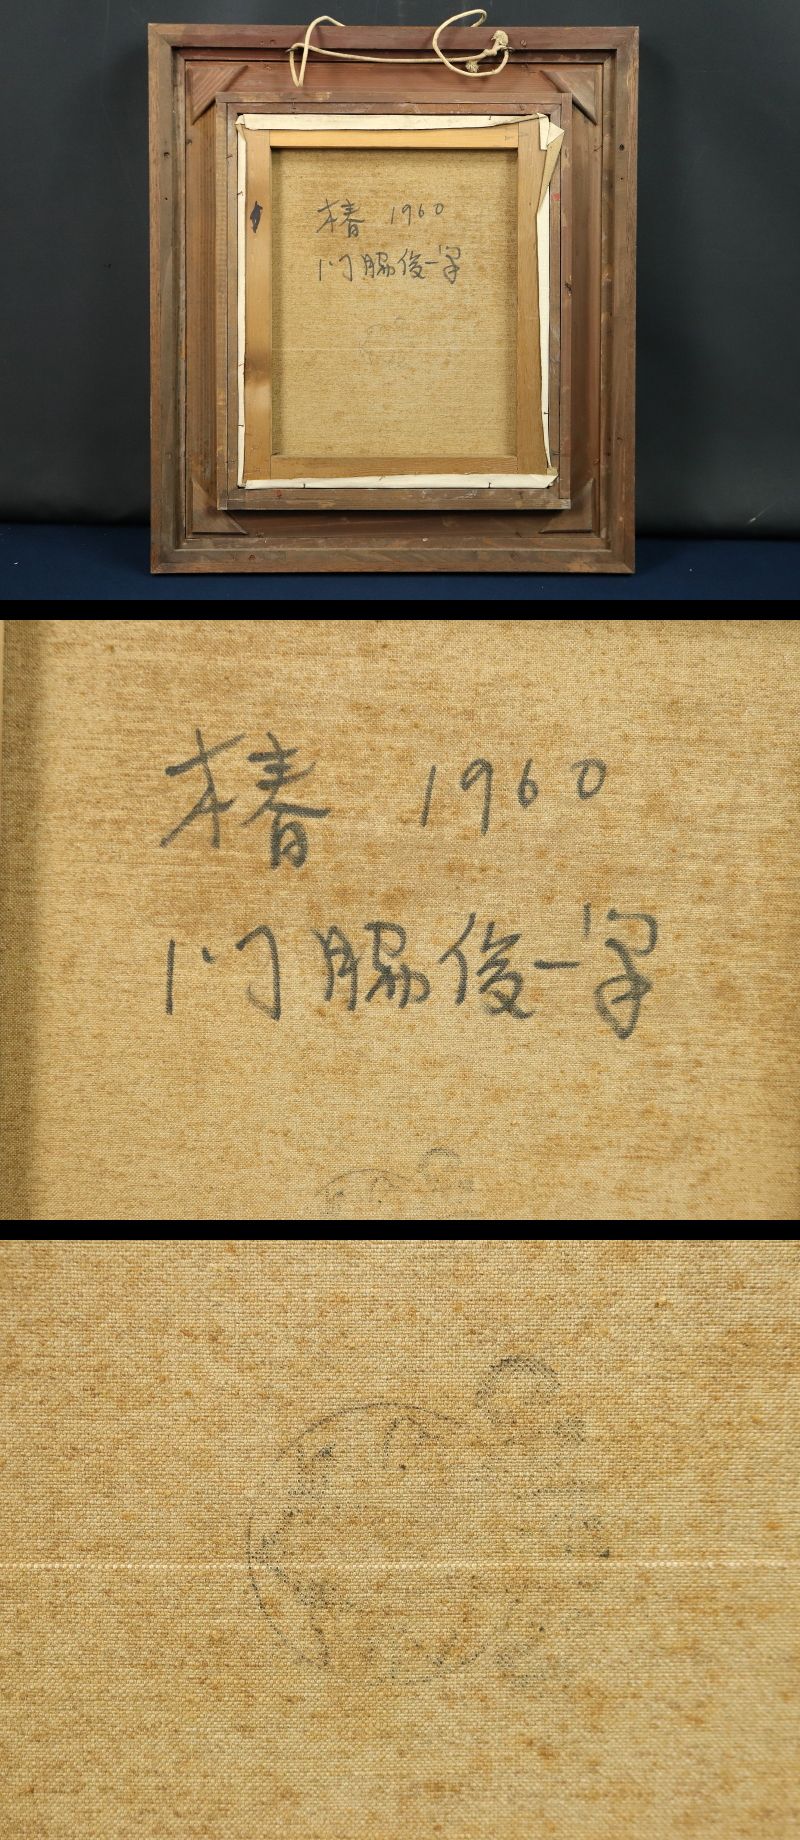 椿 1960
門脇俊一写
椿 1960
門脇俊一写